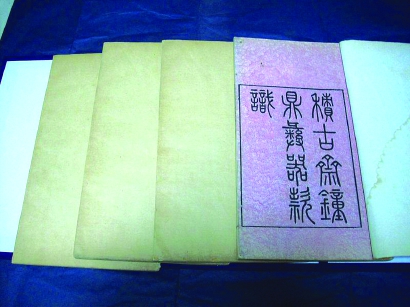 積古齋鐘
鼎彝器款
識